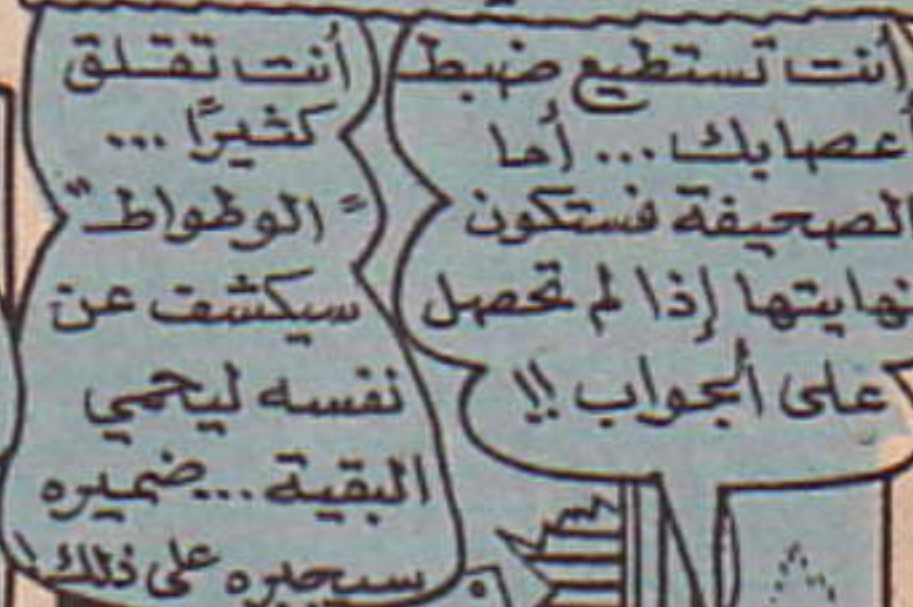 أنت تستطيع ضبط
أعصابك... أما
الصحيفة فستكون
نهايتها إذا لم تحصل
على الجواب !!
أنت تقلق
كثيرًا ...
"الوطواط"
سيكشف عن
نفسه ليحمي
البقية... ضميره
سيجبره على ذلك!